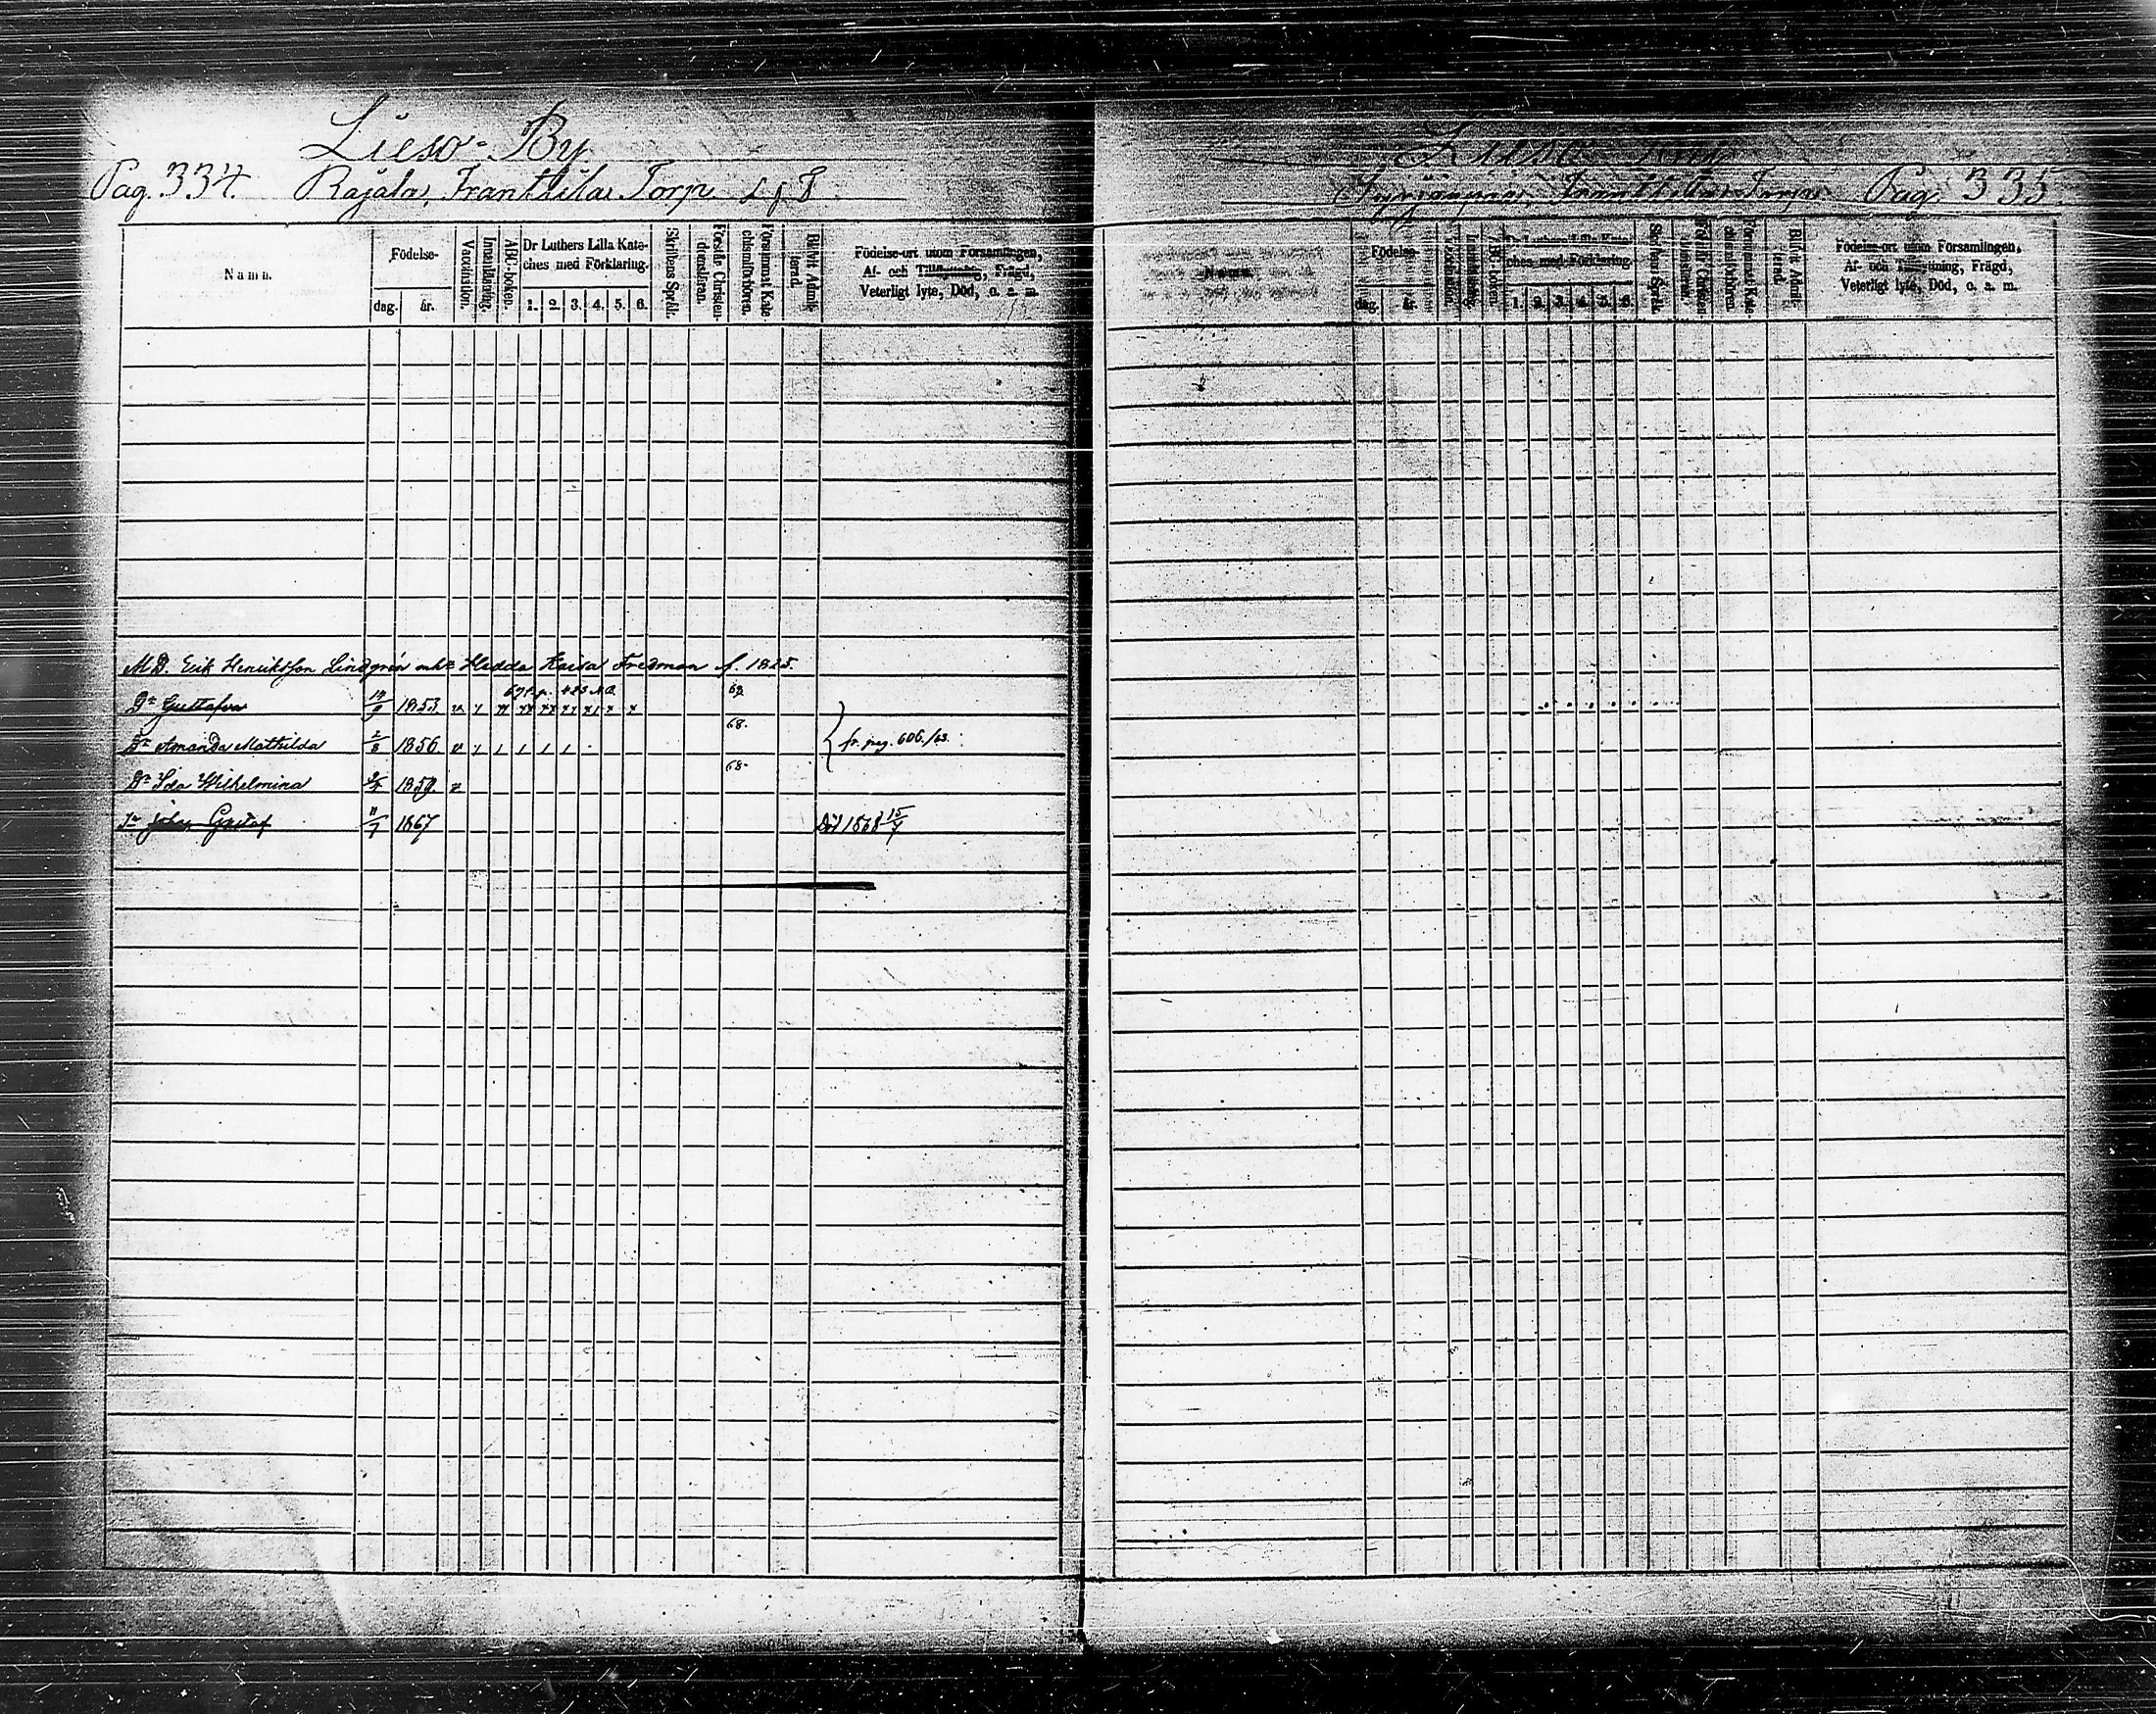 Lieso-By
Pag. 334. Rajala, Frantsila Torp
Namn.
Födelse-
dag. år.
Vaccination.
Innanläsning.
ABC-boken.
Dr Luthers Lilla Kate-
ches med Förklaring.
1. 2. 3. 4. 5. 6.
Skriftens Språk.
Förstår Christen-
domsläran.
Försummat Kate-
chismiförhören.
Blifvit Admit-
terad.
Födelse-ort utom Församlingen,
Af- och Tillflyttning, Frägd,
Veterligt lyte, Död, o. a. m.
MD. Erik Henriksson Lindgrén Hedda Kaisa Fredman f. 1825.
Dr Gustafva 14/9 1853. v 69
Dr Amanda Mathilda 2/8 1856 v 68. fr. pag. 606./63.
Dr Ida Wilhelmina 1859. v 68.
Sn Johan Gustaf 11/7 1867 Död 1868 15/4
Lieso By
Frantsila Torp Pag. 335.
Namn.
Födelse-
dag. år.
Vaccination.
Innanläsning.
ABC-boken.
Dr Luthers Lilla Kate-
ches med Förklaring.
1. 2. 3. 4. 5. 6.
Skriftens Språk.
Förstår Christen-
domsläran.
Försummat Kate-
chismiförhören.
Blifvit Admit-
terad.
Födelse-ort utom Församlingen,
Af- och Tillflyttning, Frägd,
Veterligt lyte, Död, o. a. m.